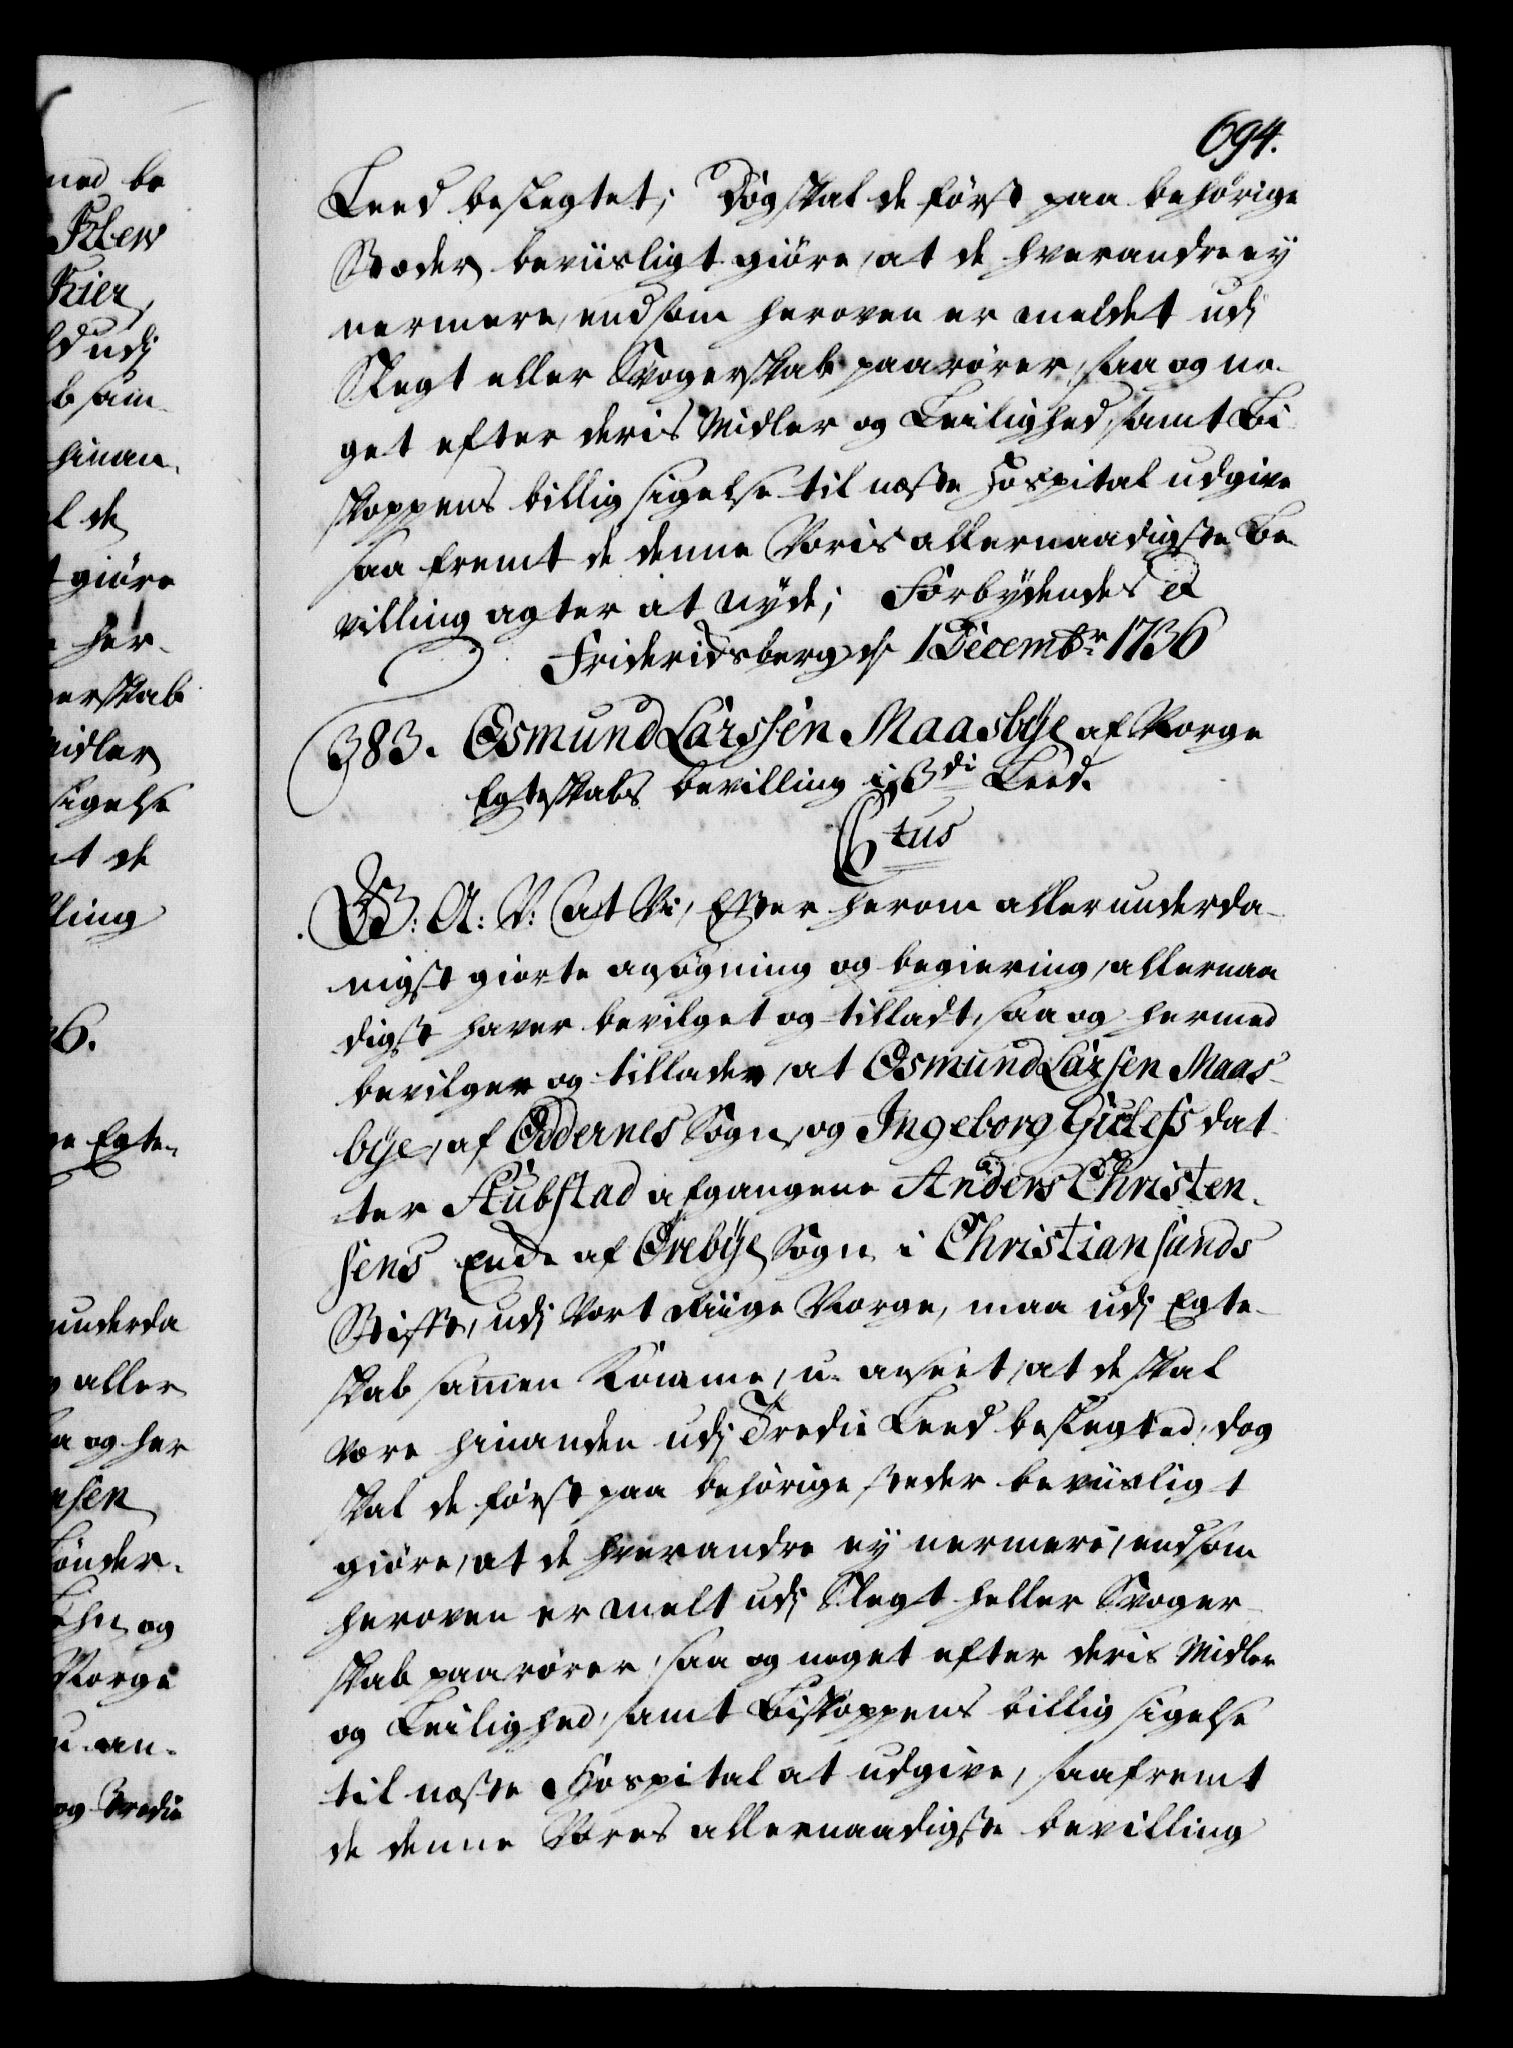 694.
Leed beslegtet; Dog skal de först paa behörige
Stæder beviisligt giöre, at de hverandre ey
nermere, end som heroven er meldet udj
Slegt eller Svogerskab paarörer, saa og no-
get efter deris Midler og Leilighed, samt Bi
skoppens billig sigelse til næste Hospital udgive
saa fremt de denne Voris allernaadigste Be-
villing agter at nyde; Forbydendes &
Frideridsberg d. 1 Decembr. 1736
383. Osmund Larssen Maasbye af Norge
Egteskabs bevilling i 3di Leed.
C 6tus
G. A. V. at Vi, Efter herom allerunderda-
nigst giorte ansögning og begiering, allernaa
digst haver bevilget og tilladt, saa og hermed
bevilger og tillader, at Osmund Larsen Maas-
bye, af Oddernes Sogn, og Ingeborg Gulefs dat
ter Stubstad afgangene Anders Christen-
sens Enke af Örebye Sogn i Christiansunds
Stift, udj Vort Riige Norge, maa udj Egte-
skab samen komme, u-anseet, at de skal
være hinanden udj Tredie Leed beslegted, dog
skal de först paa behörige steder beviisligt
giöre, at de hverandre ey nermere, end som
heroven er melt udj Slegt heller Svoger-
skab paarörer, saa og noget efter deris Midler
og Leilighed, samt Biskoppens billig sigelse
til næste Hospital at udgive, saafremt
de denne Vores allernaadigste bevilling